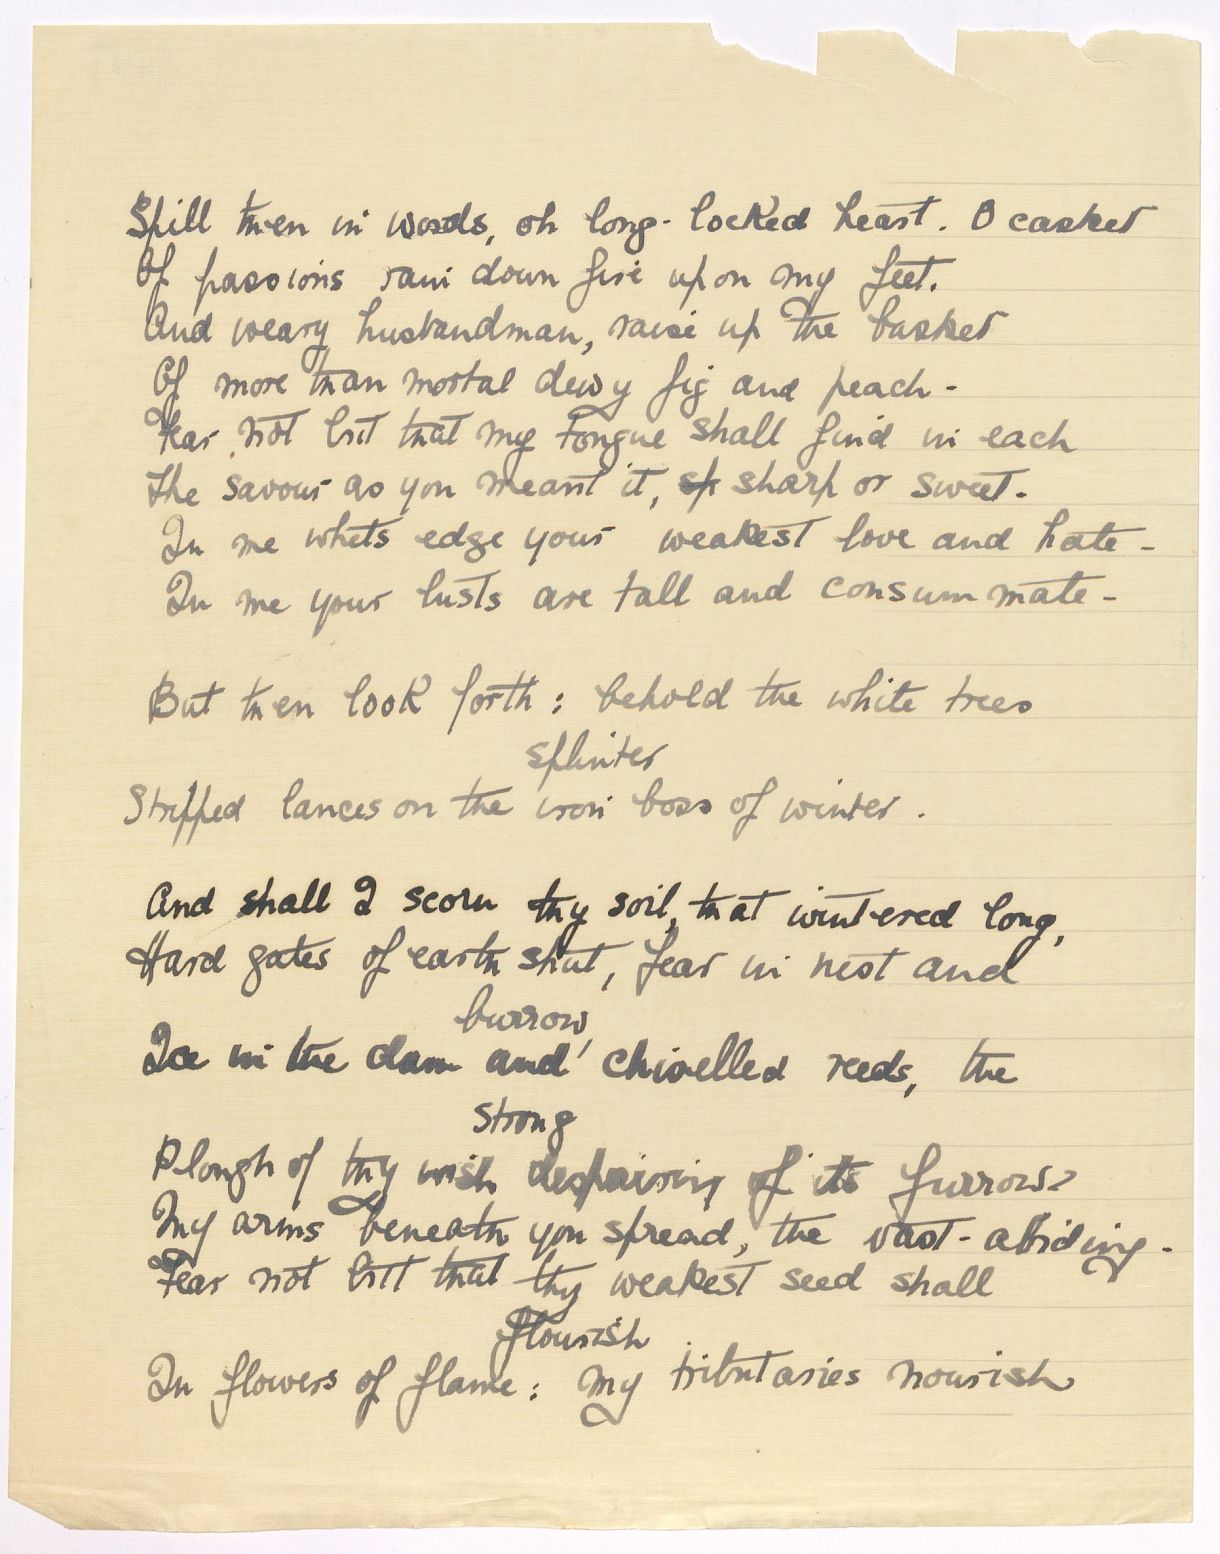 Spill then in words, oh long-locked heart. O casket
Of passions rain down fire upon my feet.
And weary husbandman, raise up the basket
Of more than mortal dewy fig and peach -
Fear not but that my tongue shall find in each
The savour as you meant it, sp sharp or sweet.
In me whets edge your weakest love and hate -
In me your lusts are tall and consummate -
But then look forth: behold the white trees
splinter
Stripped lances on the iron boss of winter.
And shall I scorn thy soil, that wintered long,
Hard gates of earth shut, fear in nest and
burrow,
Ice in the dam and chiselled reeds, the
strong
Plough of thy wish despairing of its furrow?
My arms beneath you spread, the vast-abiding -
Fear not but that thy weakest seed shall
flourish
In flowers of flame: my tributaries nourish